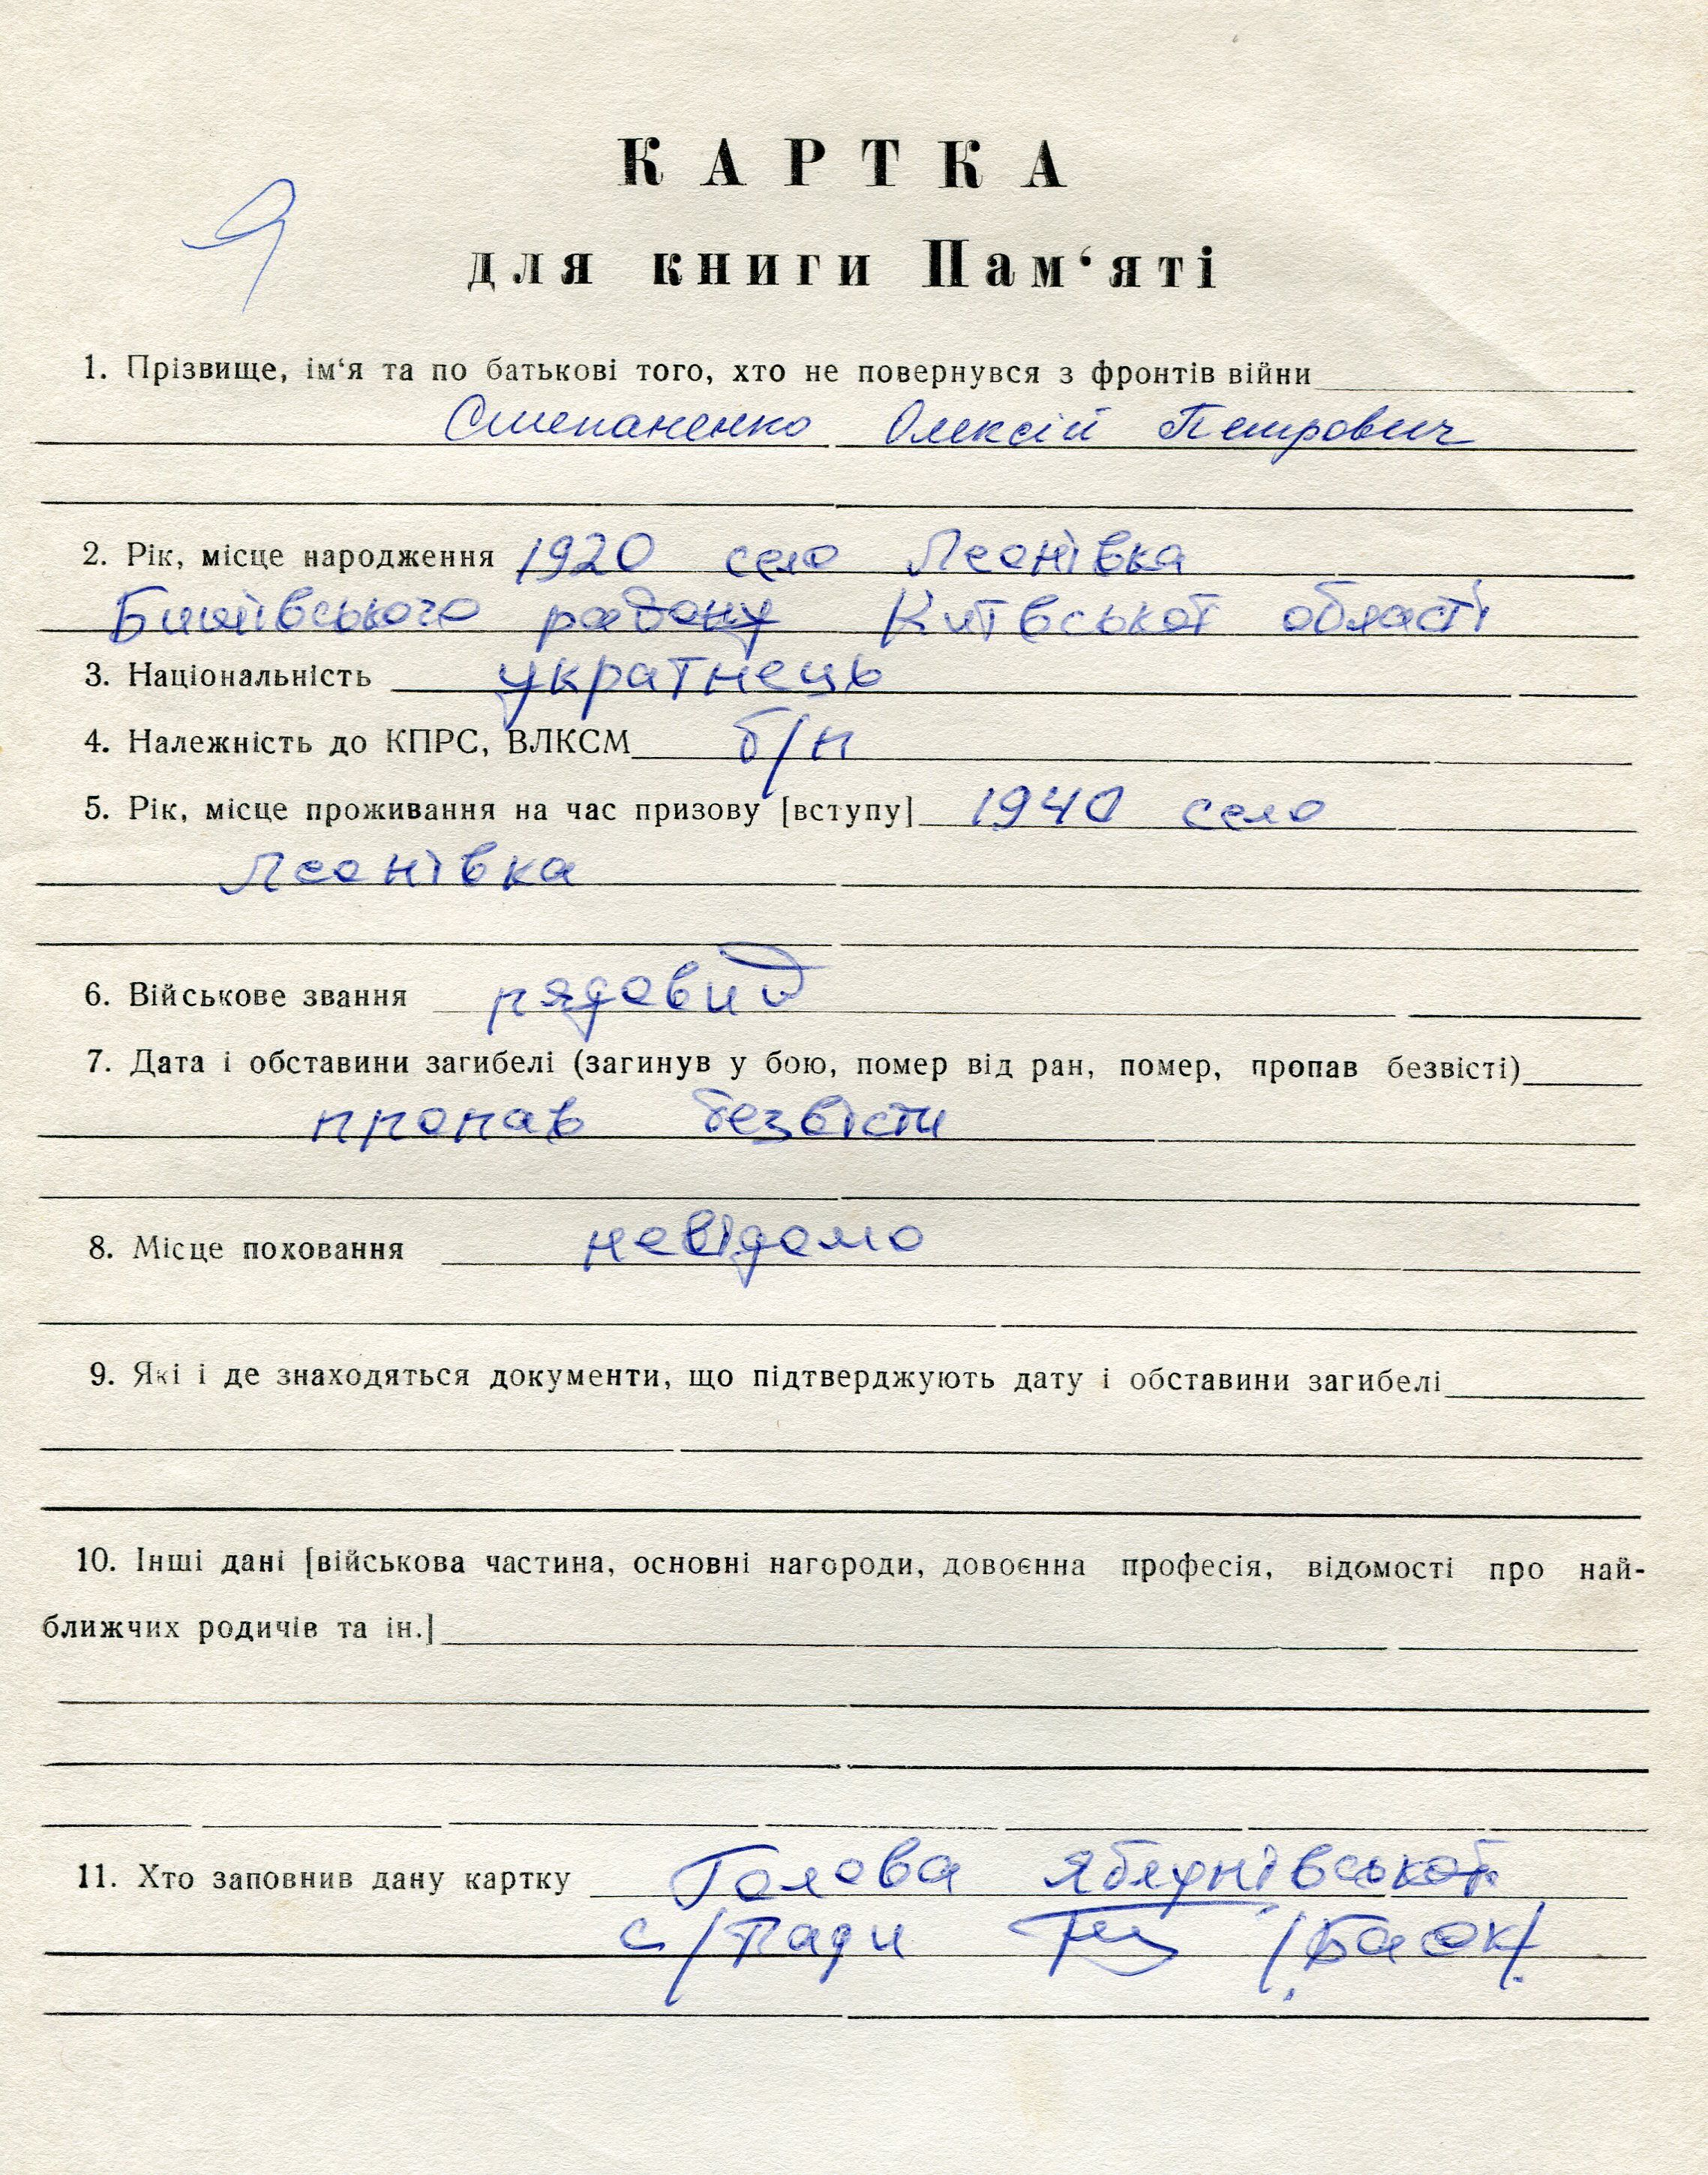 КАРТКА
для книги Пам‘яті
1. Прізвище, ім‘я та по батькові того, хто не повернувся з фронтів війни
Степаненко Олексій Петрович
2. Рік, місце народження 1920 село Леонівка
Бишівського району Київської області
3. Національність українець
4. Належність до КПРС, ВЛКСМ б/п
5. Рік, місце проживання на час призову [вступу] 1940 село
Леонівка
6. Військове звання рядовий
7. Дата і обставини загибелі (загинув у бою, помер від ран, помер, пропав безвісті)
пропав безвісти
8. Місце поховання невідомо
9. Які і де знаходяться документи, що підтверджують дату і обставини загибелі
10. Інші дані [військова частина, основні нагороди, довоєнна професія, відомості про най-
ближчих родичів та ін.]
11. Хто заповнив дану картку Голова Яблунівської
с/Ради